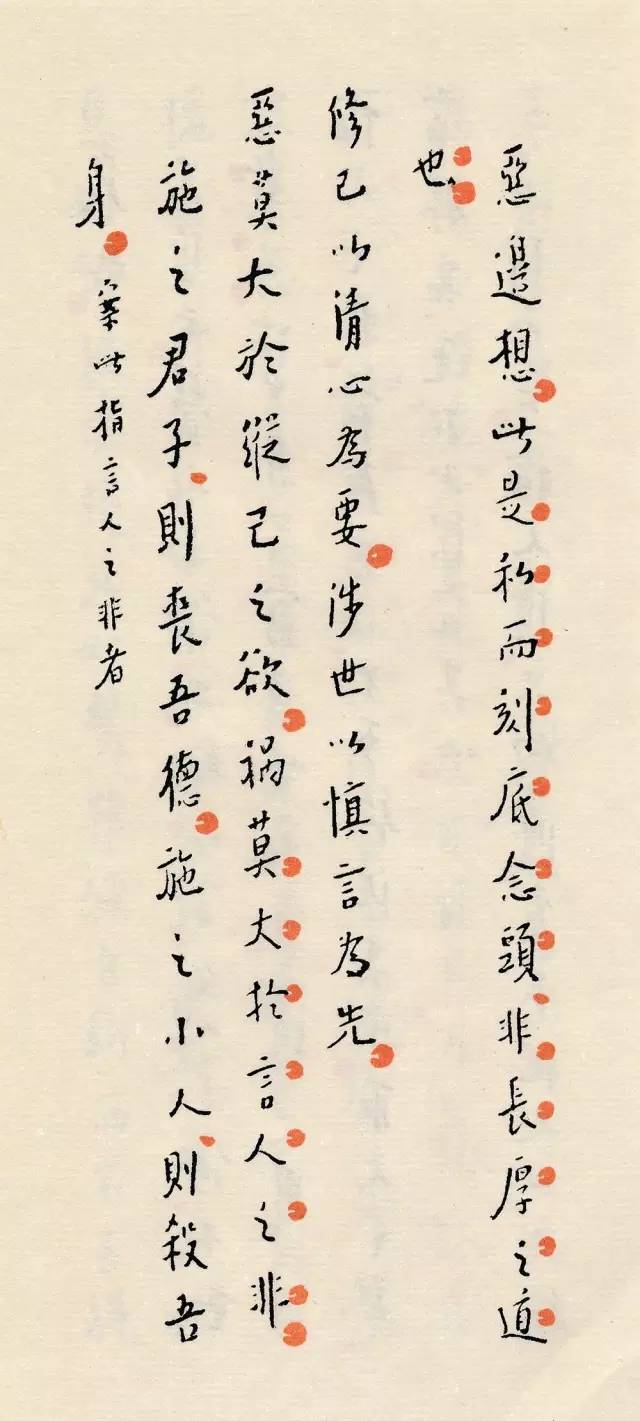 惡邊想此是私而刻底念頭非長厚之道
也
修己以清心為要涉世以慎言為先
惡莫大於縱己之欲禍莫大於言人之非
施之君子則喪吾德施之小人則殺吾
身 案此指言人之非者